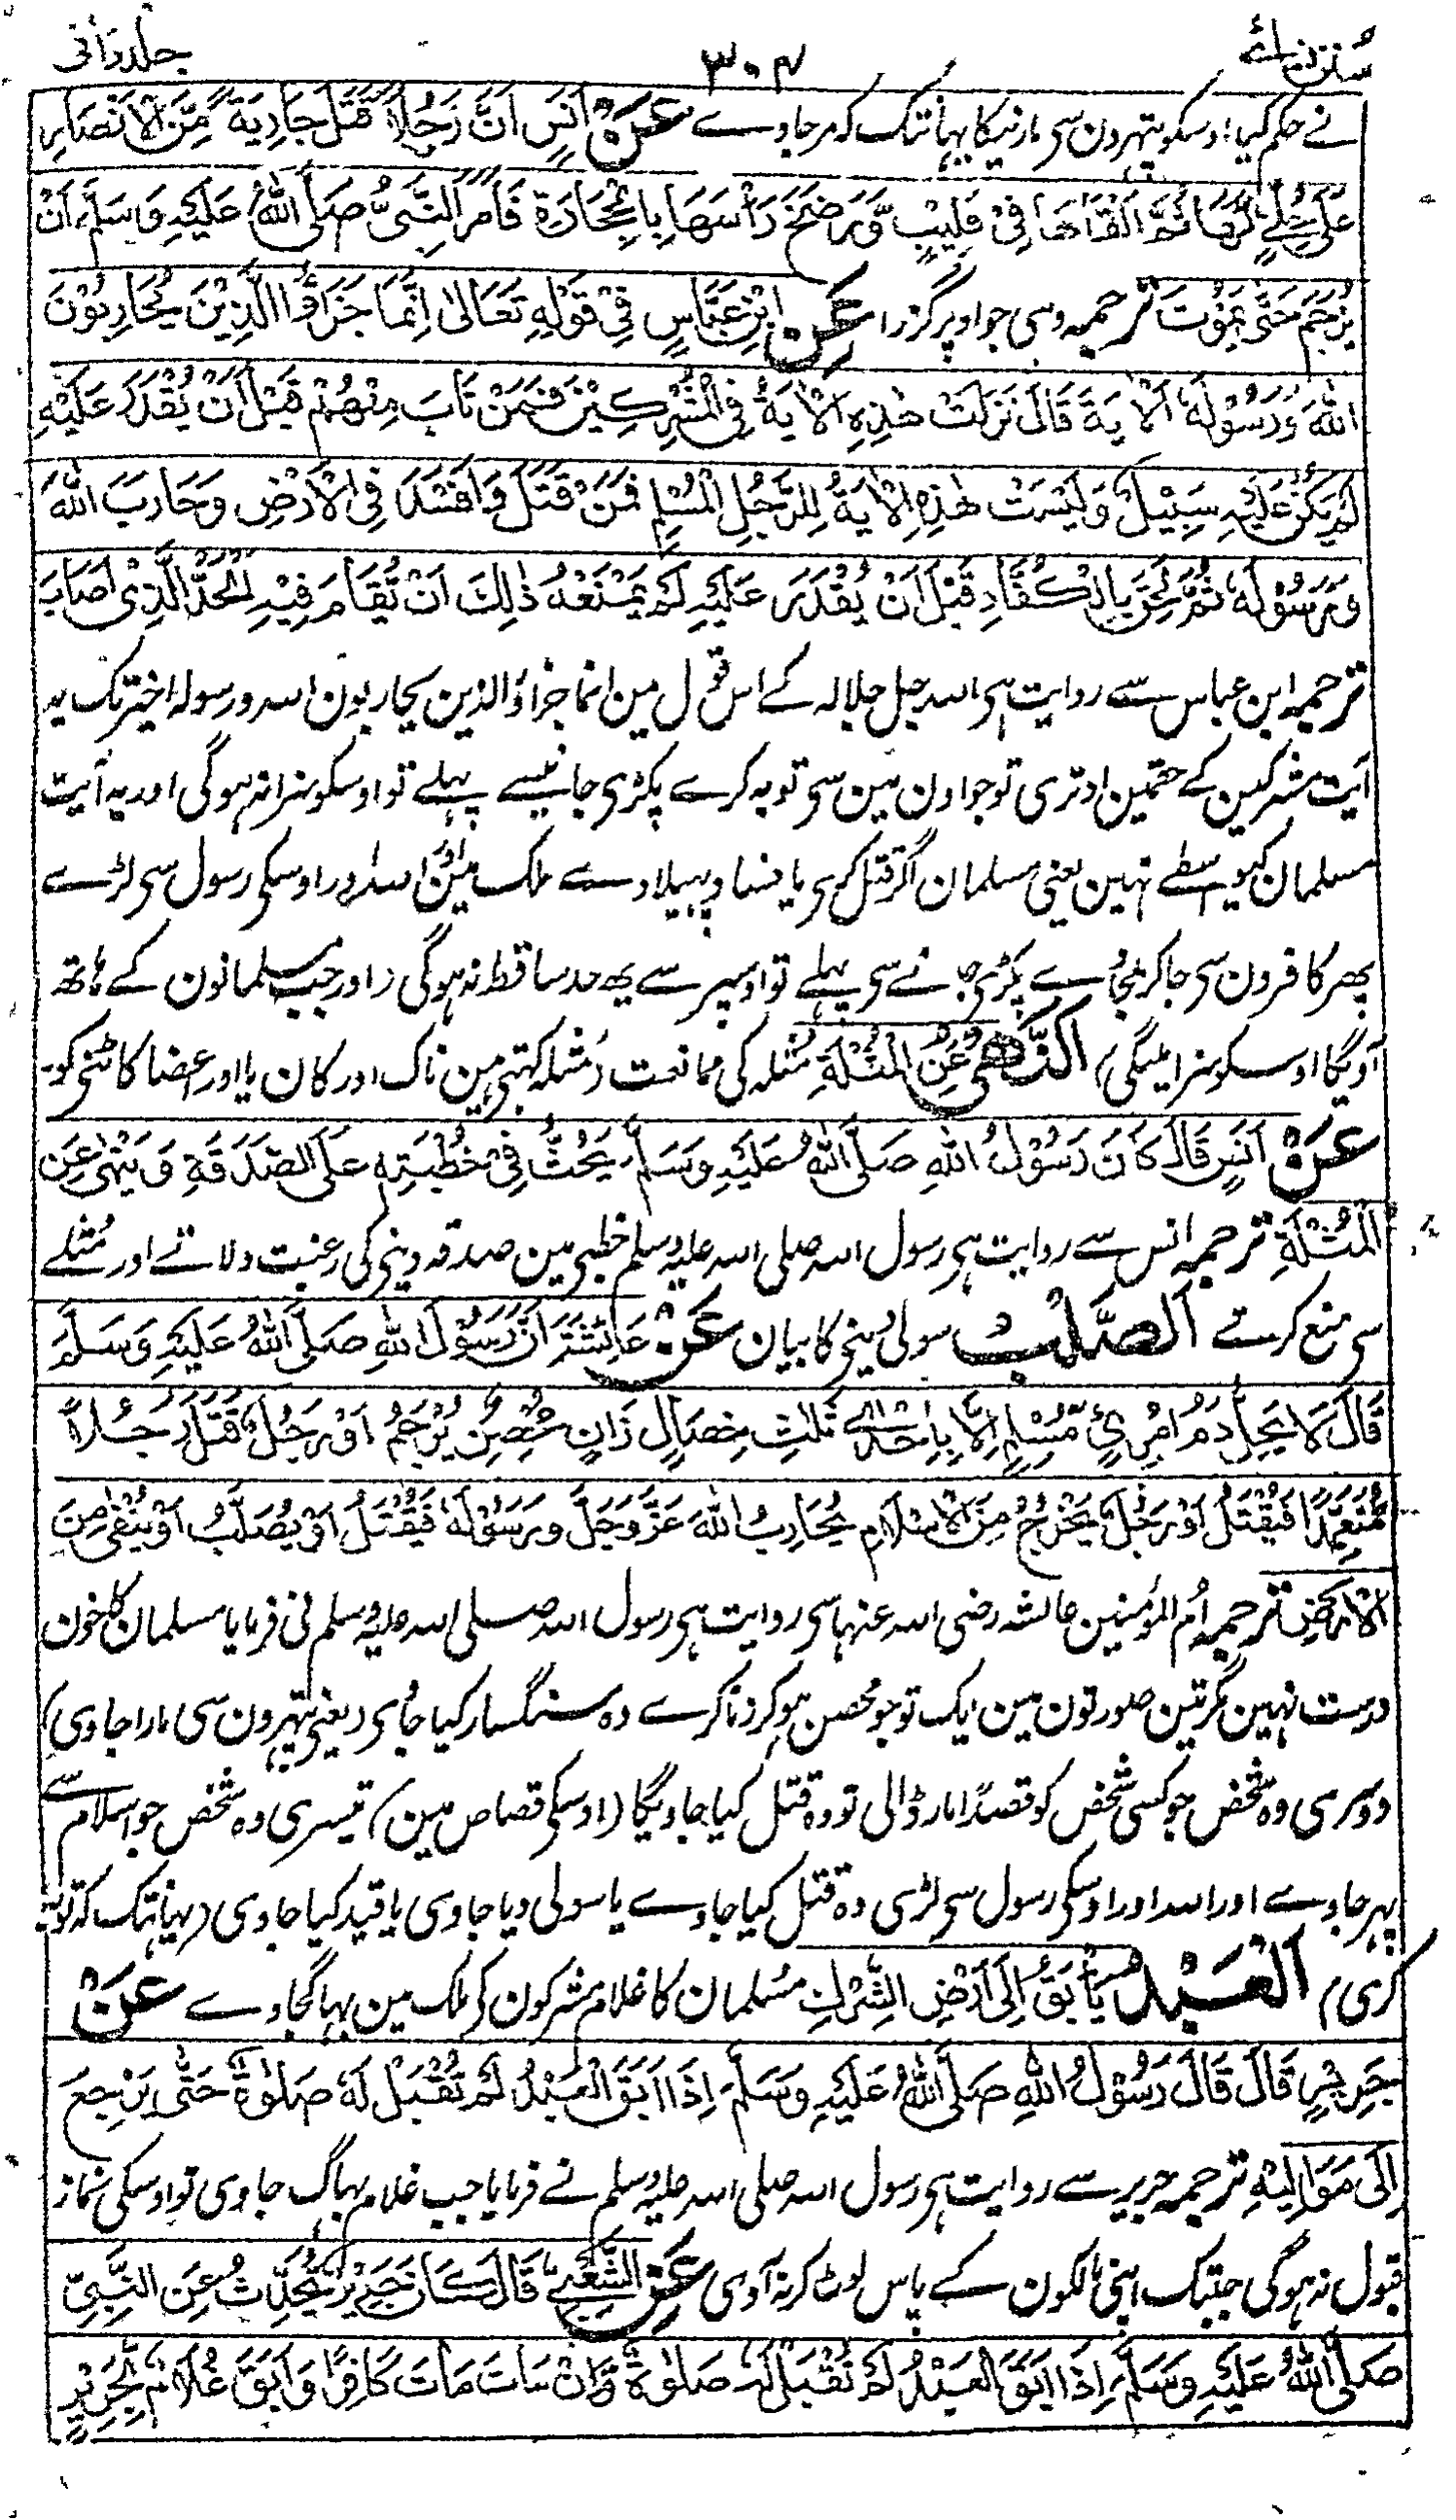 سنن نسائے ۳۰۴ جلد ثانی
نے حکم کیا اوسکو پتہرون سی مارنیکا یہانتک کہ مرجاوے عَنْ اَنَسٍ اَنَّ رَجُلًا قَتَلَ جَارِيَةً مِّنَ الْاَنْصَارِ
عَلٰى حُلِيٍّ لَهَا ثُمَّ اَلْقَاهَا فِيْ قَلِيْبٍ وَّرَضَخَ رَاْسَهَا بِالْحِجَارَةِ فَاَمَرَ النَّبِيُّ صَلَّى اللّٰهُ عَلَيْهِ وَسَلَّمَ اَنْ
يُّرْجَمَ حَتّٰى يَمُوْتَ ترجمہ وہی جو اوپر گزرا عَنِ ابْنِ عَبَّاسٍ فِيْ قَوْلِهٖ تَعَالٰى اِنَّمَا جَزَآؤُا الَّذِيْنَ يُحَارِبُوْنَ
اللّٰهَ وَرَسُوْلَهٗ اَلْاٰيَةَ قَالَ نَزَلَتْ هٰذِهِ الْاٰيَةُ فِي الْمُشْرِكِيْنَ فَمَنْ تَابَ مِنْهُمْ قَبْلَ اَنْ يُّقْدَرَ عَلَيْهِ
لَمْ يَكُنْ عَلَيْهِ سَبِيْلٌ وَلَيْسَتْ هٰذِهِ الْاٰيَةُ لِلرَّجُلِ الْمُسْلِمِ فَمَنْ قَتَلَ وَاَفْسَدَ فِي الْاَرْضِ وَحَارَبَ اللّٰهَ
وَرَسُوْلَهٗ ثُمَّ لَحِقَ بِالْكُفَّارِ قَبْلَ اَنْ يُّقْدَرَ عَلَيْهِ لَمْ يَمْنَعْهُ ذٰلِكَ اَنْ يُّقَامَ فِيْهِ الْحَدُّ الَّذِيْ اَصَابَ
ترجمہ ابن عباس سے روایت ہی اللہ جل جلالہ کے اس قول مین انما جزاؤا الذین یحاربون اللہ ورسولہ اخیر تک یہ
آیت مشرکین کے حقمین اوتری تو جو اون مین سی توبہ کرے پکڑی جانیسے پہلے تو اوسکو سزا نہ ہوگی اور یہ آیت
مسلمان کیواسطے نہین یعنی مسلمان اگر قتل کری یا فساد پہیلاوے ملک مین اور اللہ اور اوسکی رسول سی لڑے
پھر کافرون سی جاکر ملجاے پکڑی جانے سی پہلے تو اوسپر سے یہ حد ساقط نہ ہوگی (اور جب مسلمانون کے ہاتھ
آویگا اوسکو سزا ملیگی) اَلنَّهْيُ عَنِ الْمُثْلَةِ مُثلہ کی ممانعت (مُثلہ کہتی ہین ناک اور کان یا اور اعضا کاٹنی کو)
عَنْ اَنَسٍ قَالَ كَانَ رَسُوْلُ اللّٰهِ صَلَّى اللّٰهُ عَلَيْهِ وَسَلَّمَ يَحُثُّ فِيْ خُطْبَتِهٖ عَلَى الصَّدَقَةِ وَيَنْهٰى عَنِ
الْمُثْلَةِ ترجمہ انس سے روایت ہی رسول اللہ صلی اللہ علیہ وسلم خطبی مین صدقہ دینی کی رغبت دلاتے اور مُثلے
سی منع کرتے اَلصَّلْبُ سولی دینی کا بیان عَنْ عَائِشَةَ اَنَّ رَسُوْلَ اللّٰهِ صَلَّى اللّٰهُ عَلَيْهِ وَسَلَّمَ
قَالَ لَا يَحِلُّ دَمُ امْرِئٍ مُّسْلِمٍ اِلَّا بِاِحْدٰى ثَلٰثِ خِصَالٍ زَانٍ مُّحْصِنٍ يُّرْجَمُ اَوْ رَجُلٌ قَتَلَ رَجُلًا
مُّتَعَمِّدًا فَيُقْتَلُ اَوْ رَجُلٌ يَخْرُجُ مِنَ الْاِسْلَامِ يُحَارِبُ اللّٰهَ عَزَّ وَجَلَّ وَرَسُوْلَهٗ فَيُقْتَلُ اَوْ يُصَلَّبُ اَوْ يُنْفٰى مِنَ
الْاَرْضِ ترجمہ اُم المؤمنین عائشہ رضی اللہ عنہا سی روایت ہی رسول اللہ صلی اللہ علیہ وسلم نی فرمایا مسلمان کا خون
درست نہین مگر تین صورتون مین ایک تو جو محصن ہوکر زنا کرے وہ سنگسار کیا جائی (یعنی پتہرون سی مارا جاوی)
دوسری وہ شخص جو کسی شخص کو قصدًا مار ڈالی تو وہ قتل کیا جاویگا (اوسکی قصاص مین) تیسری وہ شخص جو اسلام سے
پہر جاوے اور اللہ اور اوسکی رسول سی لڑی وہ قتل کیا جاوے یا سولی دیا جاوی یا قید کیا جاوی (یہانتک کہ توبہ
کری) اَلْعَبْدُ يَأْبَقُ اِلٰى اَرْضِ الشِّرْكِ مُسلمان کا غلام مشرکون کی ملک مین بہاگ جاوے عَنْ
جَرِيْرٍ قَالَ قَالَ رَسُوْلُ اللّٰهِ صَلَّى اللّٰهُ عَلَيْهِ وَسَلَّمَ اِذَا اَبَقَ الْعَبْدُ لَمْ تُقْبَلْ لَهٗ صَلٰوةٌ حَتّٰى يَرْجِعَ
اِلٰى مَوَالِيْهِ ترجمہ جریر سے روایت ہی رسول اللہ صلی اللہ علیہ وسلم نے فرمایا جب غلام بہاگ جاوی تو اوسکی نماز
قبول نہ ہوگی جبتک اپنی مالکون کے پاس لوٹ کر نہ آوی عَنِ الشَّعْبِيِّ قَالَ كَانَ جَرِيْرٌ يُّحَدِّثُ عَنِ النَّبِيِّ
صَلَّى اللّٰهُ عَلَيْهِ وَسَلَّمَ اِذَا اَبَقَ الْعَبْدُ لَمْ تُقْبَلْ لَهٗ صَلٰوةٌ وَّاِنْ مَاتَ مَاتَ كَافِرًا وَاَبَقَ غُلَامٌ لِّجَرِيْرٍ